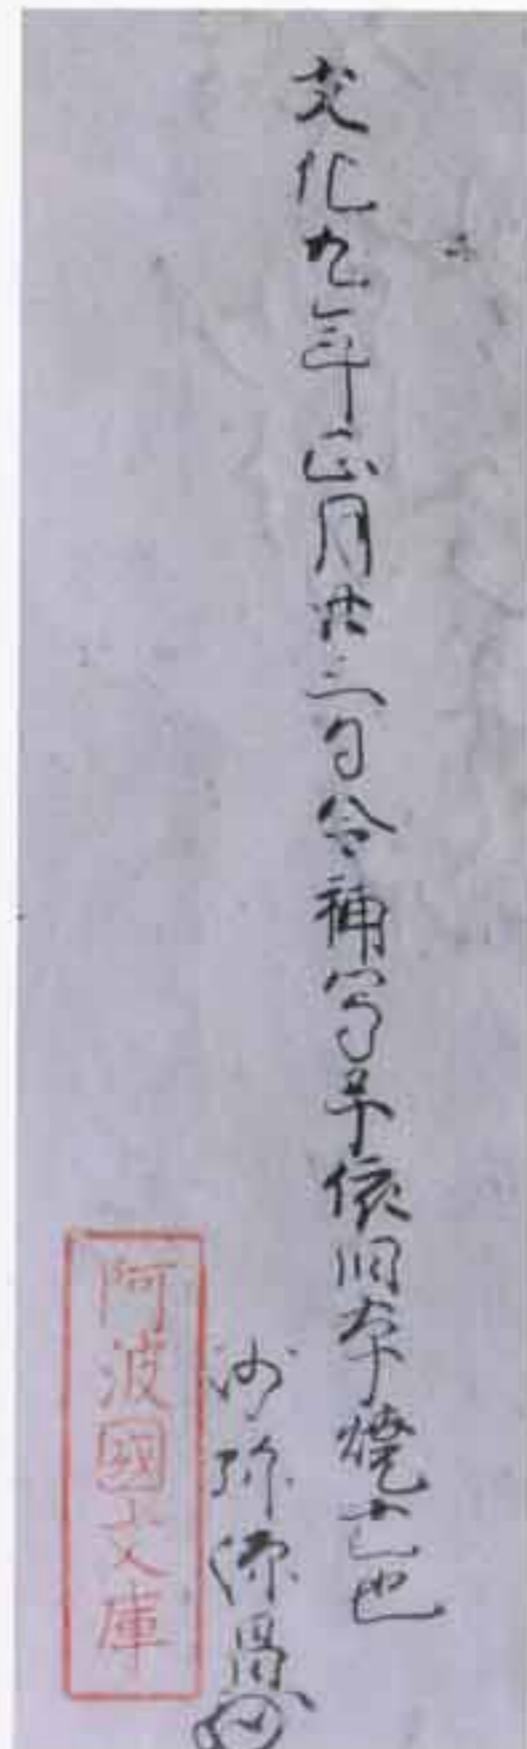 文化九年正月廿三日令補写早依旧本焼亡也
沙弥源
阿波國文庫